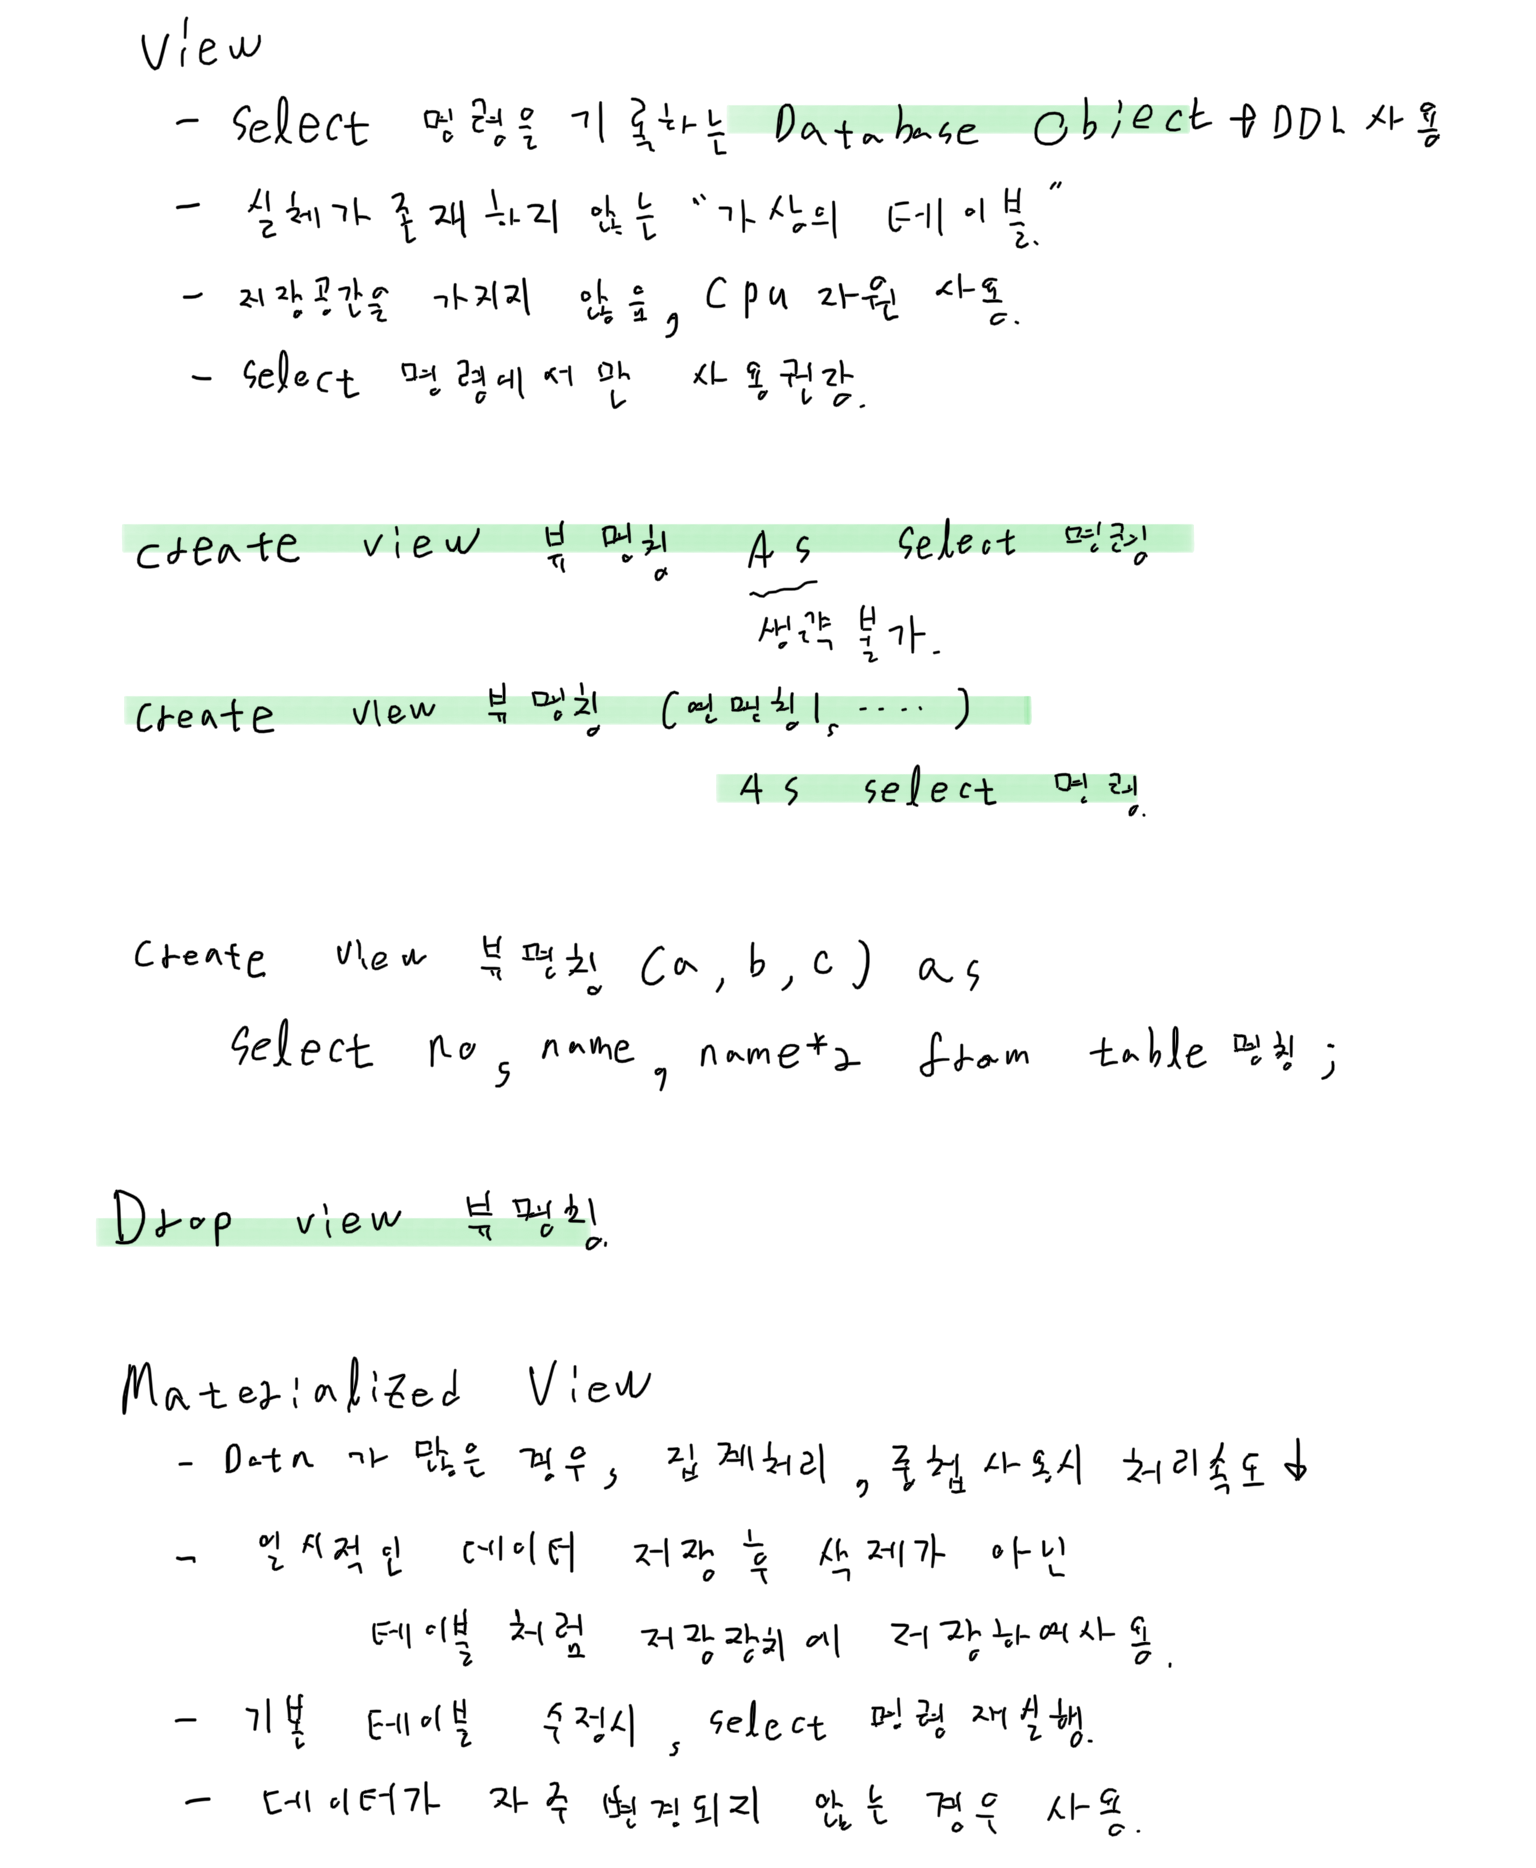 View
- Select 명령을 기록하는 Database Object → DDL 사용
- 실체가 존재하지 않는 "가상의 테이블"
- 저장공간을 가지지 않음, Cpu 자원 사용.
- Select 명령에서만 사용권장.
create view 뷰 명칭 As Select 명령
생략 불가.
Create view 뷰 명칭 (열명칭1, ....)
As select 명령.
Create view 뷰 명칭 (a, b, c) as
Select no, name, name*2 from table 명칭;
Drop view 뷰 명칭.
Materialized View
- Data 가 많은 경우, 집계처리, 중첩 사용시 처리속도 ↓
- 일시적인 데이터 저장 후 삭제가 아닌
테이블 처럼 저장장치에 저장하여사용.
- 기본 테이블 수정시, select 명령 재실행.
- 데이터가 자주 변경되지 않는 경우 사용.